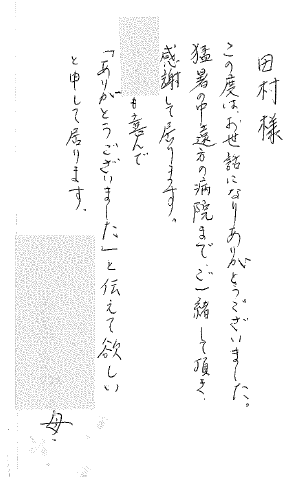 田村様
この度は、お世話になりありがとうございました。
猛暑の中、遠方の病院まで、ご一緒して頂き、
感謝して居ります。
も喜んで
「ありがとうございました」と伝えて欲しい
と申して居ります。
母